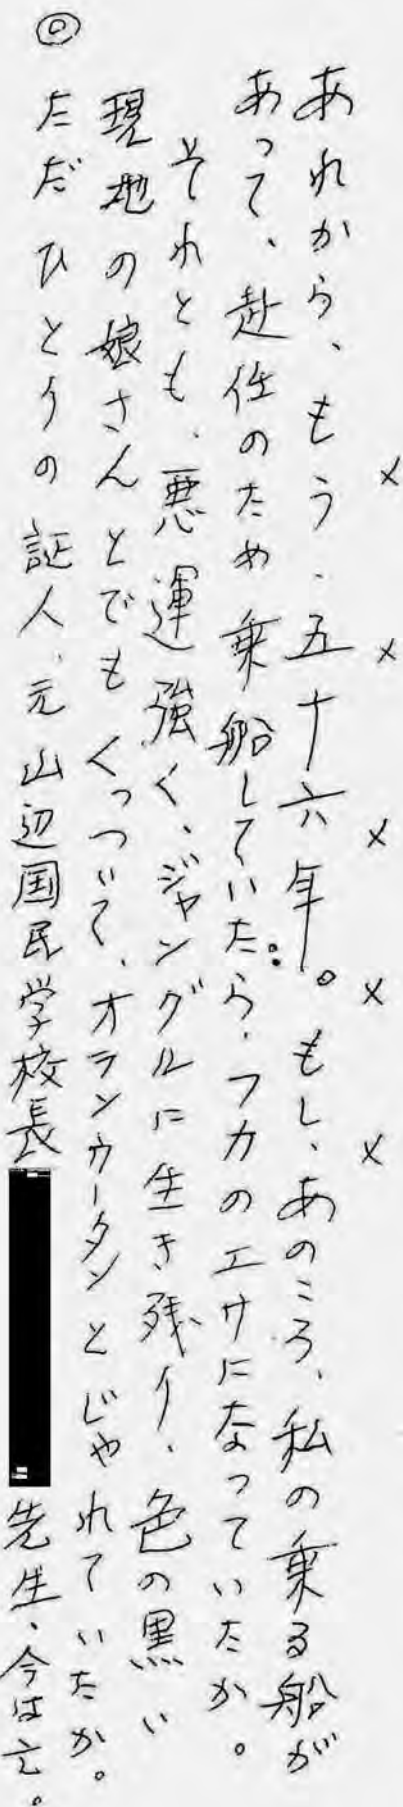 × × × × ×
あれから、もう、五十六年。もし、あのころ、私の乗る船が
あって、赴任のため乗船していたら、フカのエサになっていたか。
それとも、悪運強く、ジャングルに生き残り、色の黒い
現地の娘さんとでもくっついて、オランウータンとじゃれていたか。
◎ただひとりの証人、元山辺国民学校長 先生、今は亡。